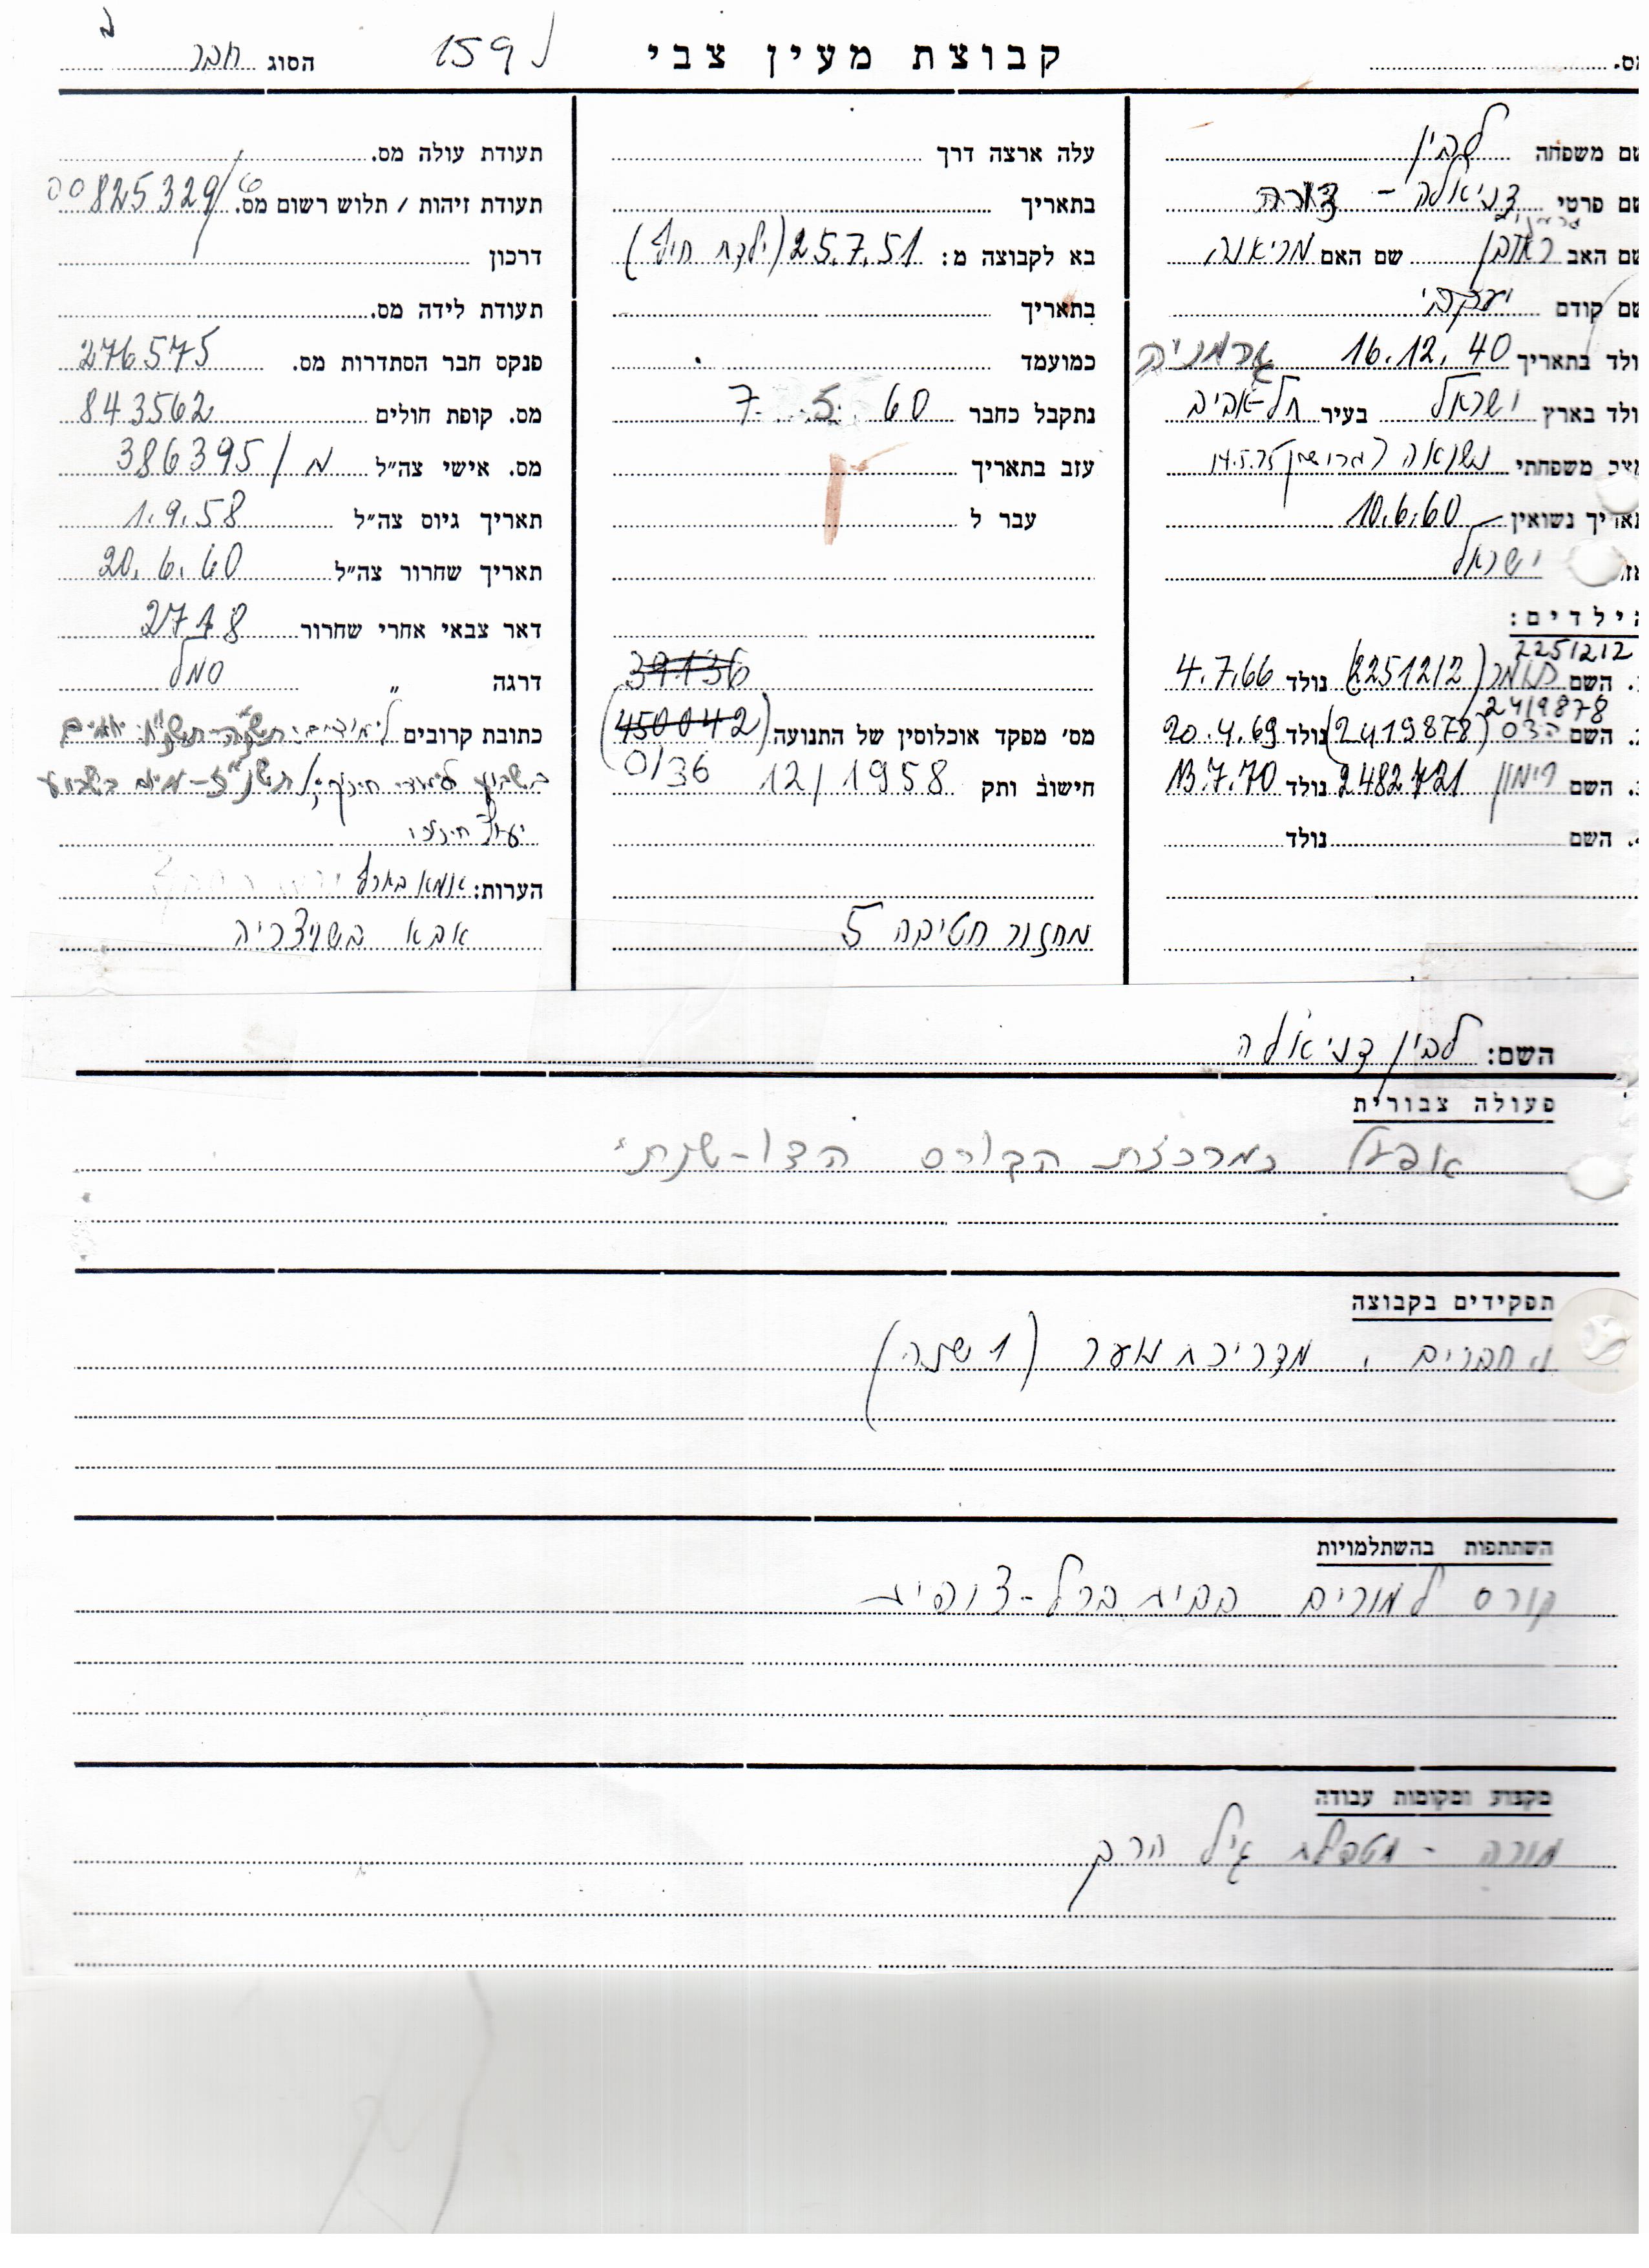 מס.
קבוצת מעין צבי
159
הסוג חבר
שם משפחה לבין
שם פרטי דניאלה - דורה
שם האב ראובן שם האם מריאנה
שם קודם יעקבי
נולד בתאריך 16.12.40 גרמניה
נולד בארץ ישראל בעיר תל-אביב
מצב משפחתי נשואה (גרושה 14.5.75
תאריך נשואין 10.6.60
ישראל
הילדים:
2251212
1. השם תומר (2251212) נולד 4.7.66
2419878
2. השם הדס (2419878) נולד 20.4.69
3. השם רימון 2482721 נולד 13.7.70
4. השם נולד
עלה ארצה דרך
בתאריך
בא לקבוצה מ: 25.7.51 (ילדת חוץ)
בתאריך
כמועמד
נתקבל כחבר 7.5.60
עזב בתאריך
עבר ל
39136
מס׳ מפקד אוכלוסין של התנועה (450042)
0/36
חישוב ותק 12/1958
מחזור חטיבה 5
תעודת עולה מס.
תעודת זיהות / תלוש רשום מס. 00825329/6
דרכון
תעודת לידה מס.
פנקס חבר הסתדרות מס. 276575
מס. קופת חולים 843562
מס. אישי צה״ל מ/386395
תאריך גיוס צה״ל 1.9.58
תאריך שחרור צה״ל 20.6.60
דאר צבאי אחרי שחרור 2718
דרגה " סמל
כתובת קרובים לימודים: תשל"ה-תשל"ו יומיים
בשבוע לימודי חינוך,
יעוץ חינוכי
הערות: אמא בארץ
אבא בשויצריה
השם: לבין דניאלה
פעולה צבורית
אפעל כמרכזת הקורס הדו-שנתי
תפקידים בקבוצה
ו. חברים, מדריכת נוער (1 שנה)
השתתפות בהשתלמויות
קורס למורים בבית ברל-צופית
מקצוע ומקומות עבודה
מורה - מטפלת גיל הרך